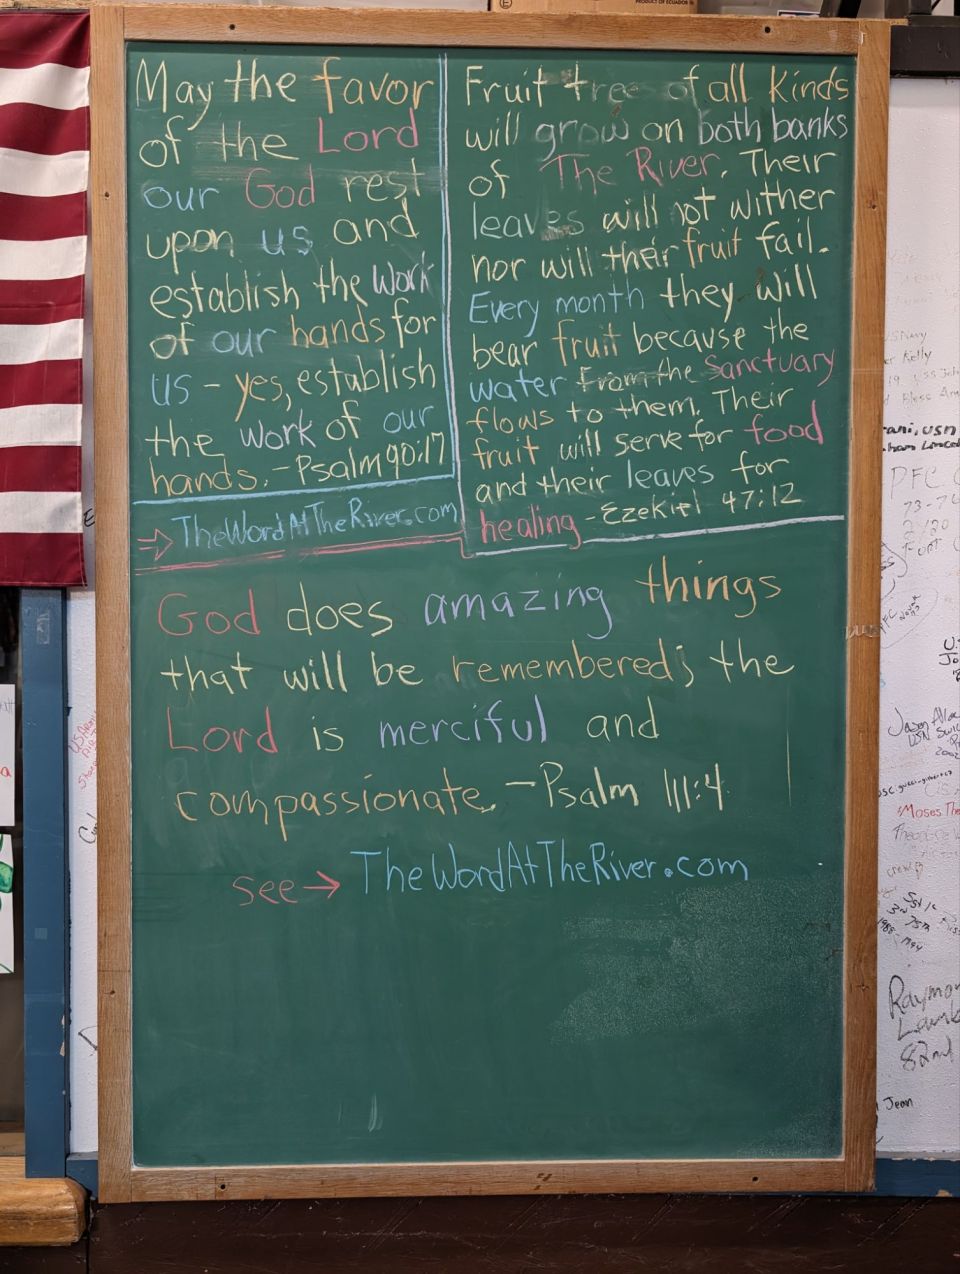 PRODUCT OF ECUADOR
May the favor
of the Lord
our God rest
upon us and
establish the work
of our hands for
us - yes, establish
the work of our
hands. - Psalm 90:17
→ TheWordAtTheRiver.com
Fruit tree of all kinds
will grow on both banks
of The River. Their
leaves will not wither
nor will their fruit fail.
Every month they will
bear fruit because the
water from the Sanctuary
flows to them. Their
fruit will serve for food
and their leaves for
healing - Ezekiel 47:12
God does amazing things
that will be remembered; the
Lord is merciful and
compassionate. - Psalm 111:4
see → TheWordAtTheRiver.com
Kelly
PFC
Moses The
Raymo
Lamb
82nd
Jean